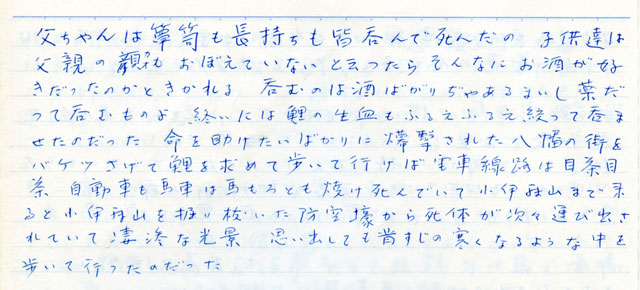 父ちゃんは箪笥も長持ちも皆呑んで死んだの 子供達は
父親の顔もおぼえていないと云ったらそんなにお酒が好
きだったのかときかれる 呑むのは酒ばかりぢやあるまいし薬だ
って呑むものよ 終いには鯉の生血もふるえふるえ絞って呑ま
せたのだった 命を助けたいばかりに爆撃された八幡の街を
バケツさげて鯉を求めて歩いて行けば電車線路は目茶目
茶 自動車も馬車は馬もろとも焼け死んでいて小伊藤山まで来
ると小伊藤山を掘り抜いた防空壕から死体が次々運び出さ
れていて凄惨な光景 思い出しても背すじの寒くなるような中を
歩いて行ったのだった